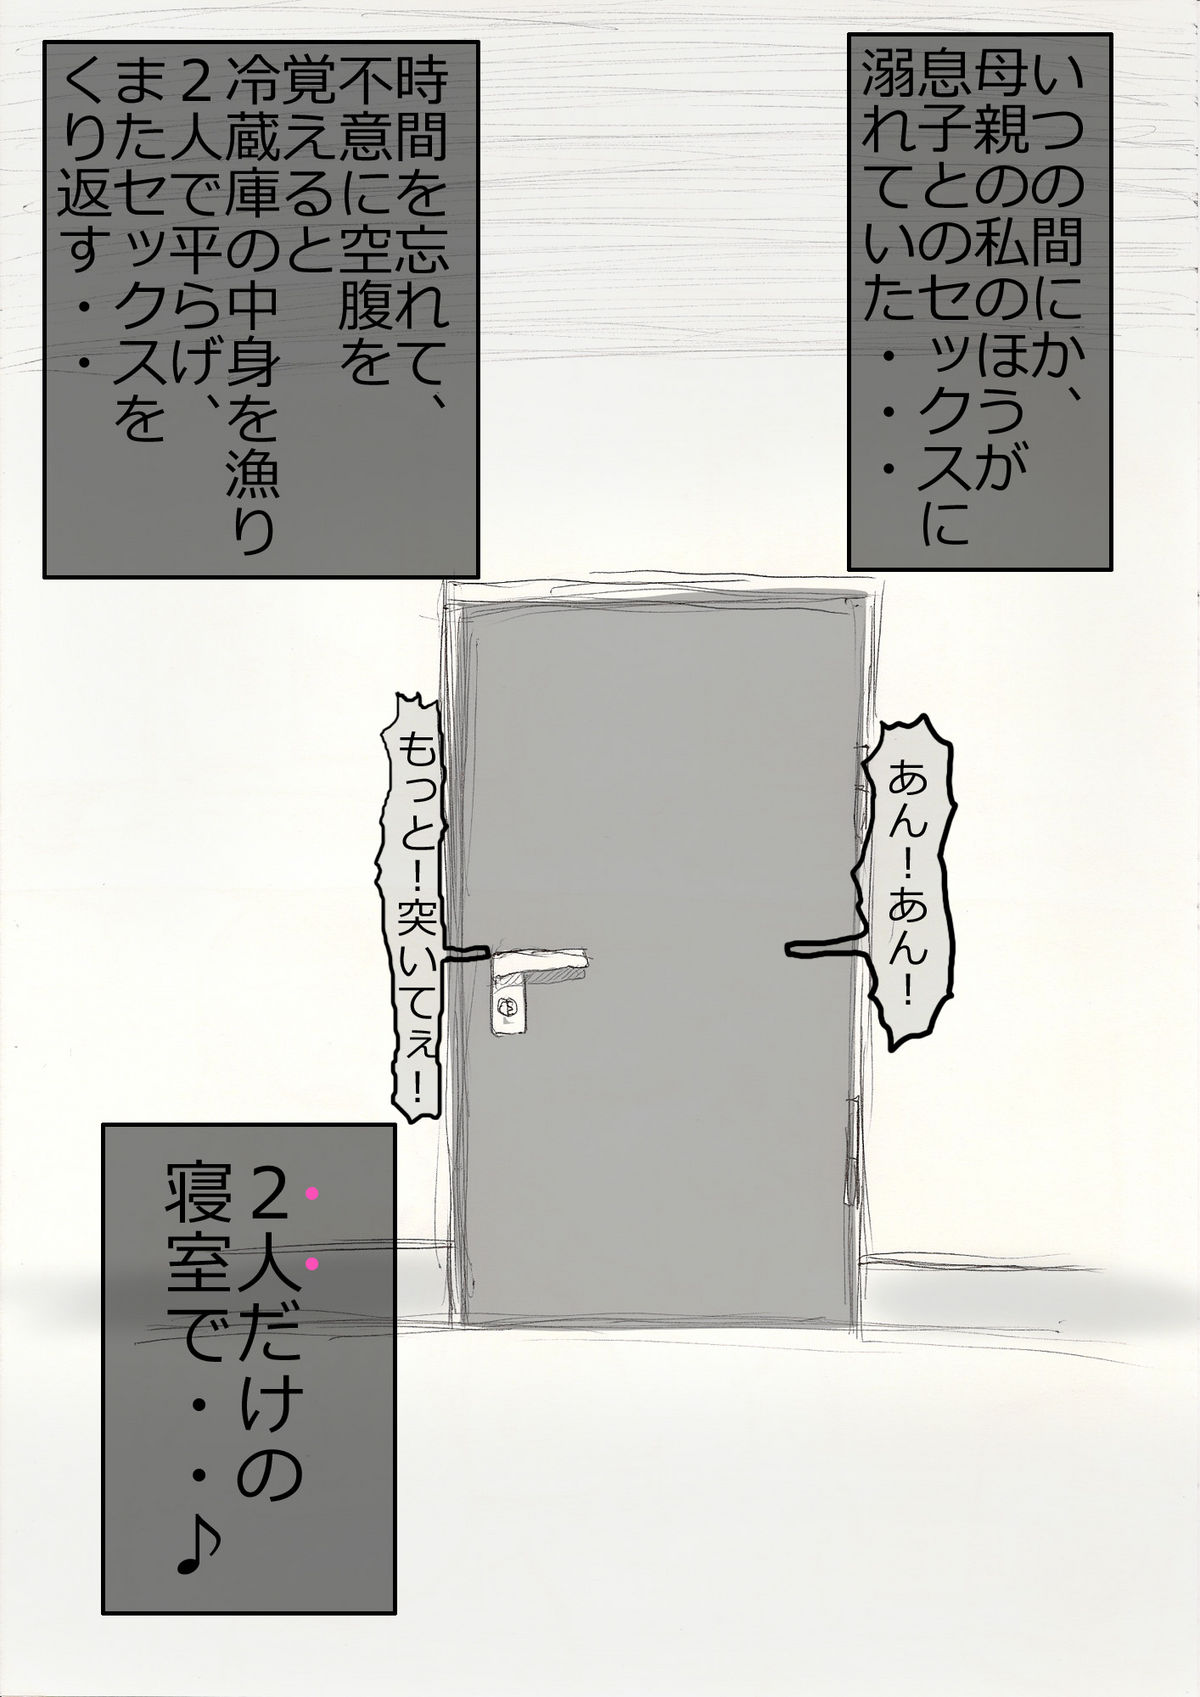 いつの間にか、
母親の私のほうが
息子とのセックスに
溺れていた・・・
時間を忘れて、
不意に空腹を
覚えると
冷蔵庫の中身を漁り
２人で平らげ、
またセックスを
くり返す・・
あん！あん！
もっと！突いてぇ！
２人だけの
寝室で・・♪